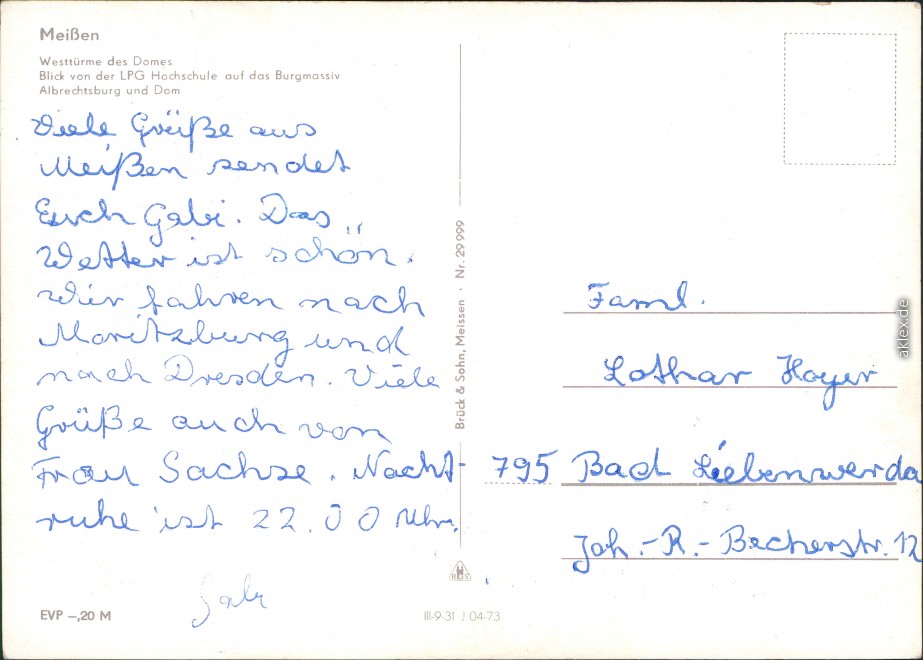 Meißen
Westtürme des Domes
Blick von der LPG Hochschule auf das Burgmassiv
Albrechtsburg und Dom
Viele Grüße aus
Meißen sendet
Euch Gabi. Das
Wetter ist schön.
Wir fahren nach
Moritzburg und
nach Dresden. Viele
Grüße auch von
Frau Sachse. Nacht-
ruhe ist 22.00 Uhr.
Gabi
EVP –,20 M
Brück & Sohn, Meissen · Nr. 29 999
B&S
III-9-31 J 04-73
Faml.
Lothar Hoyer
795 Bad Liebenwerda
Joh.-R.-Becherstr. 12
aklex.de